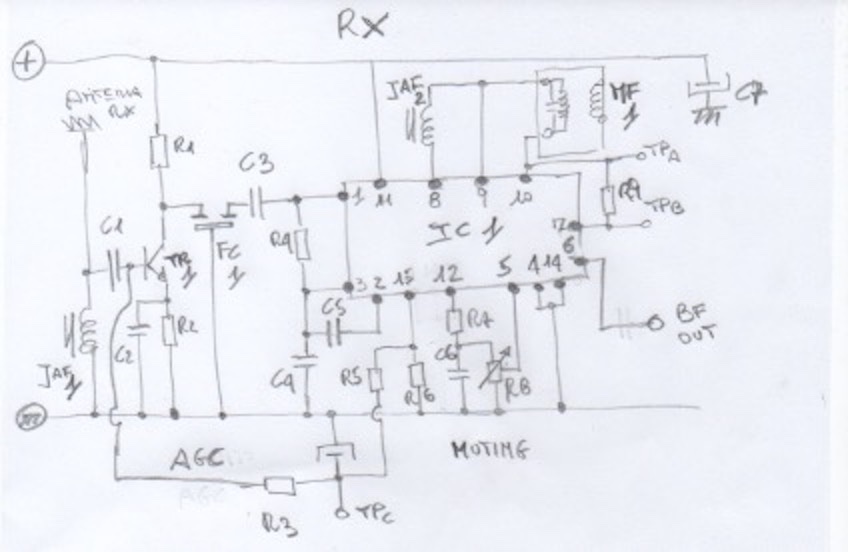 RX
+
ANTENNA
RX
JAF
2
MF
1
C7
R1
C3
TPA
1
11
8
9
10
R9
TPB
C1
TR
1
FC
1
R4
IC 1
7
6
3
2
15
12
5
4
14
C5
R7
BF
OUT
C2
R2
JAF
1
C4
R5
R6
C6
R8
AGC
MUTING
R3
TPC